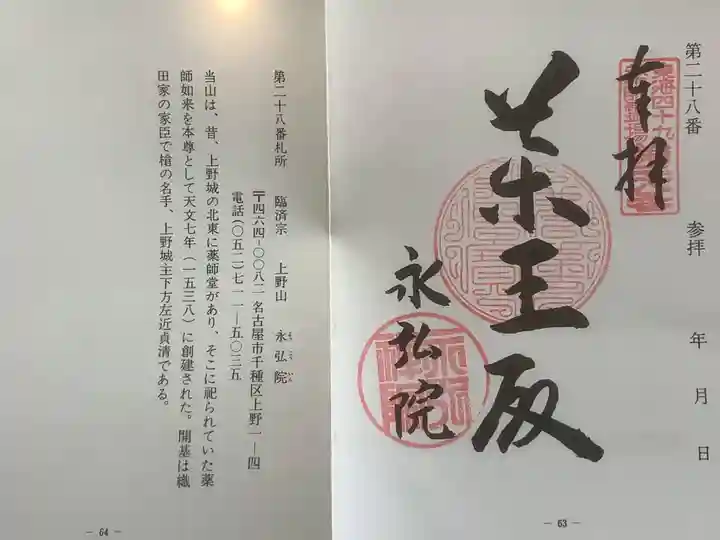 第二十八番
奉拝
参拝 年 月 日
薬王殿
永弘院
― 63 ―
第二十八番札所 臨済宗 上野山 永弘院
〒四六四‐〇〇八二 名古屋市千種区上野一―四
電話(〇五二)七一一―五〇三五
当山は、昔、上野城の北東に薬師堂があり、そこに祀られていた薬
師如来を本尊として天文七年(一五三八)に創建された。開基は織
田家の家臣で槍の名手、上野城主下方左近貞清である。
― 64 ―